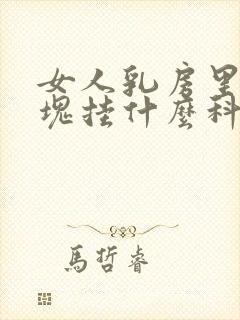 女人乳房里
塊挂什麽科
馬哲睿